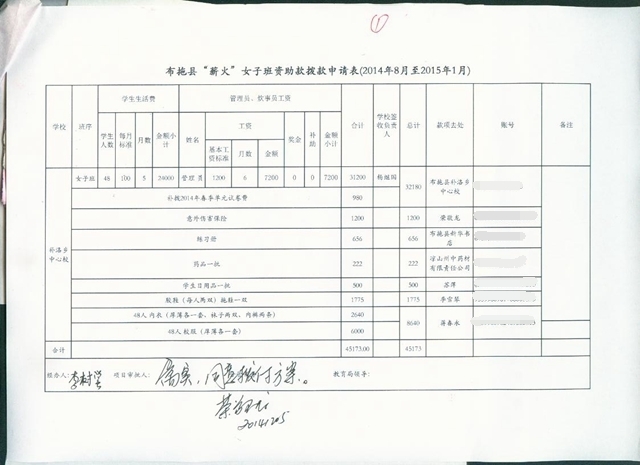 ①
布拖县“薪火”女子班资助款拨款申请表(2014年8月至2015年1月)
学校 班序 学生生活费 管理员、炊事员工资 合计 学校签收负责人 总计 款项去处 账号 备注
学生人数 每月标准 月数 金额小计 姓名 工资 奖金 补助 金额小计
基本工资标准 月数 金额
补洛乡中心校 女子班 48 100 5 24000 管理员 1200 6 7200 0 0 7200 31200 杨继国 32180 布拖县补洛乡中心校
补拨2014年春季单元试卷费 980
意外伤害保险 1200 1200
练习册 656 656 布拖县新华书店
药品一批 222 222 凉山州中药材有限责任公司
学生日用品一批 500 500 苏萍
胶鞋（每人两双）拖鞋一双 1775 1775
48人内衣（厚薄各一套、袜子两双、内裤两条） 2640 8640 蒋春水
48人校服（厚薄各一套） 6000
合计 45173.00 45173
经办人: 项目审批人: 属实,同意拨付方案。 教育局领导:
20141205